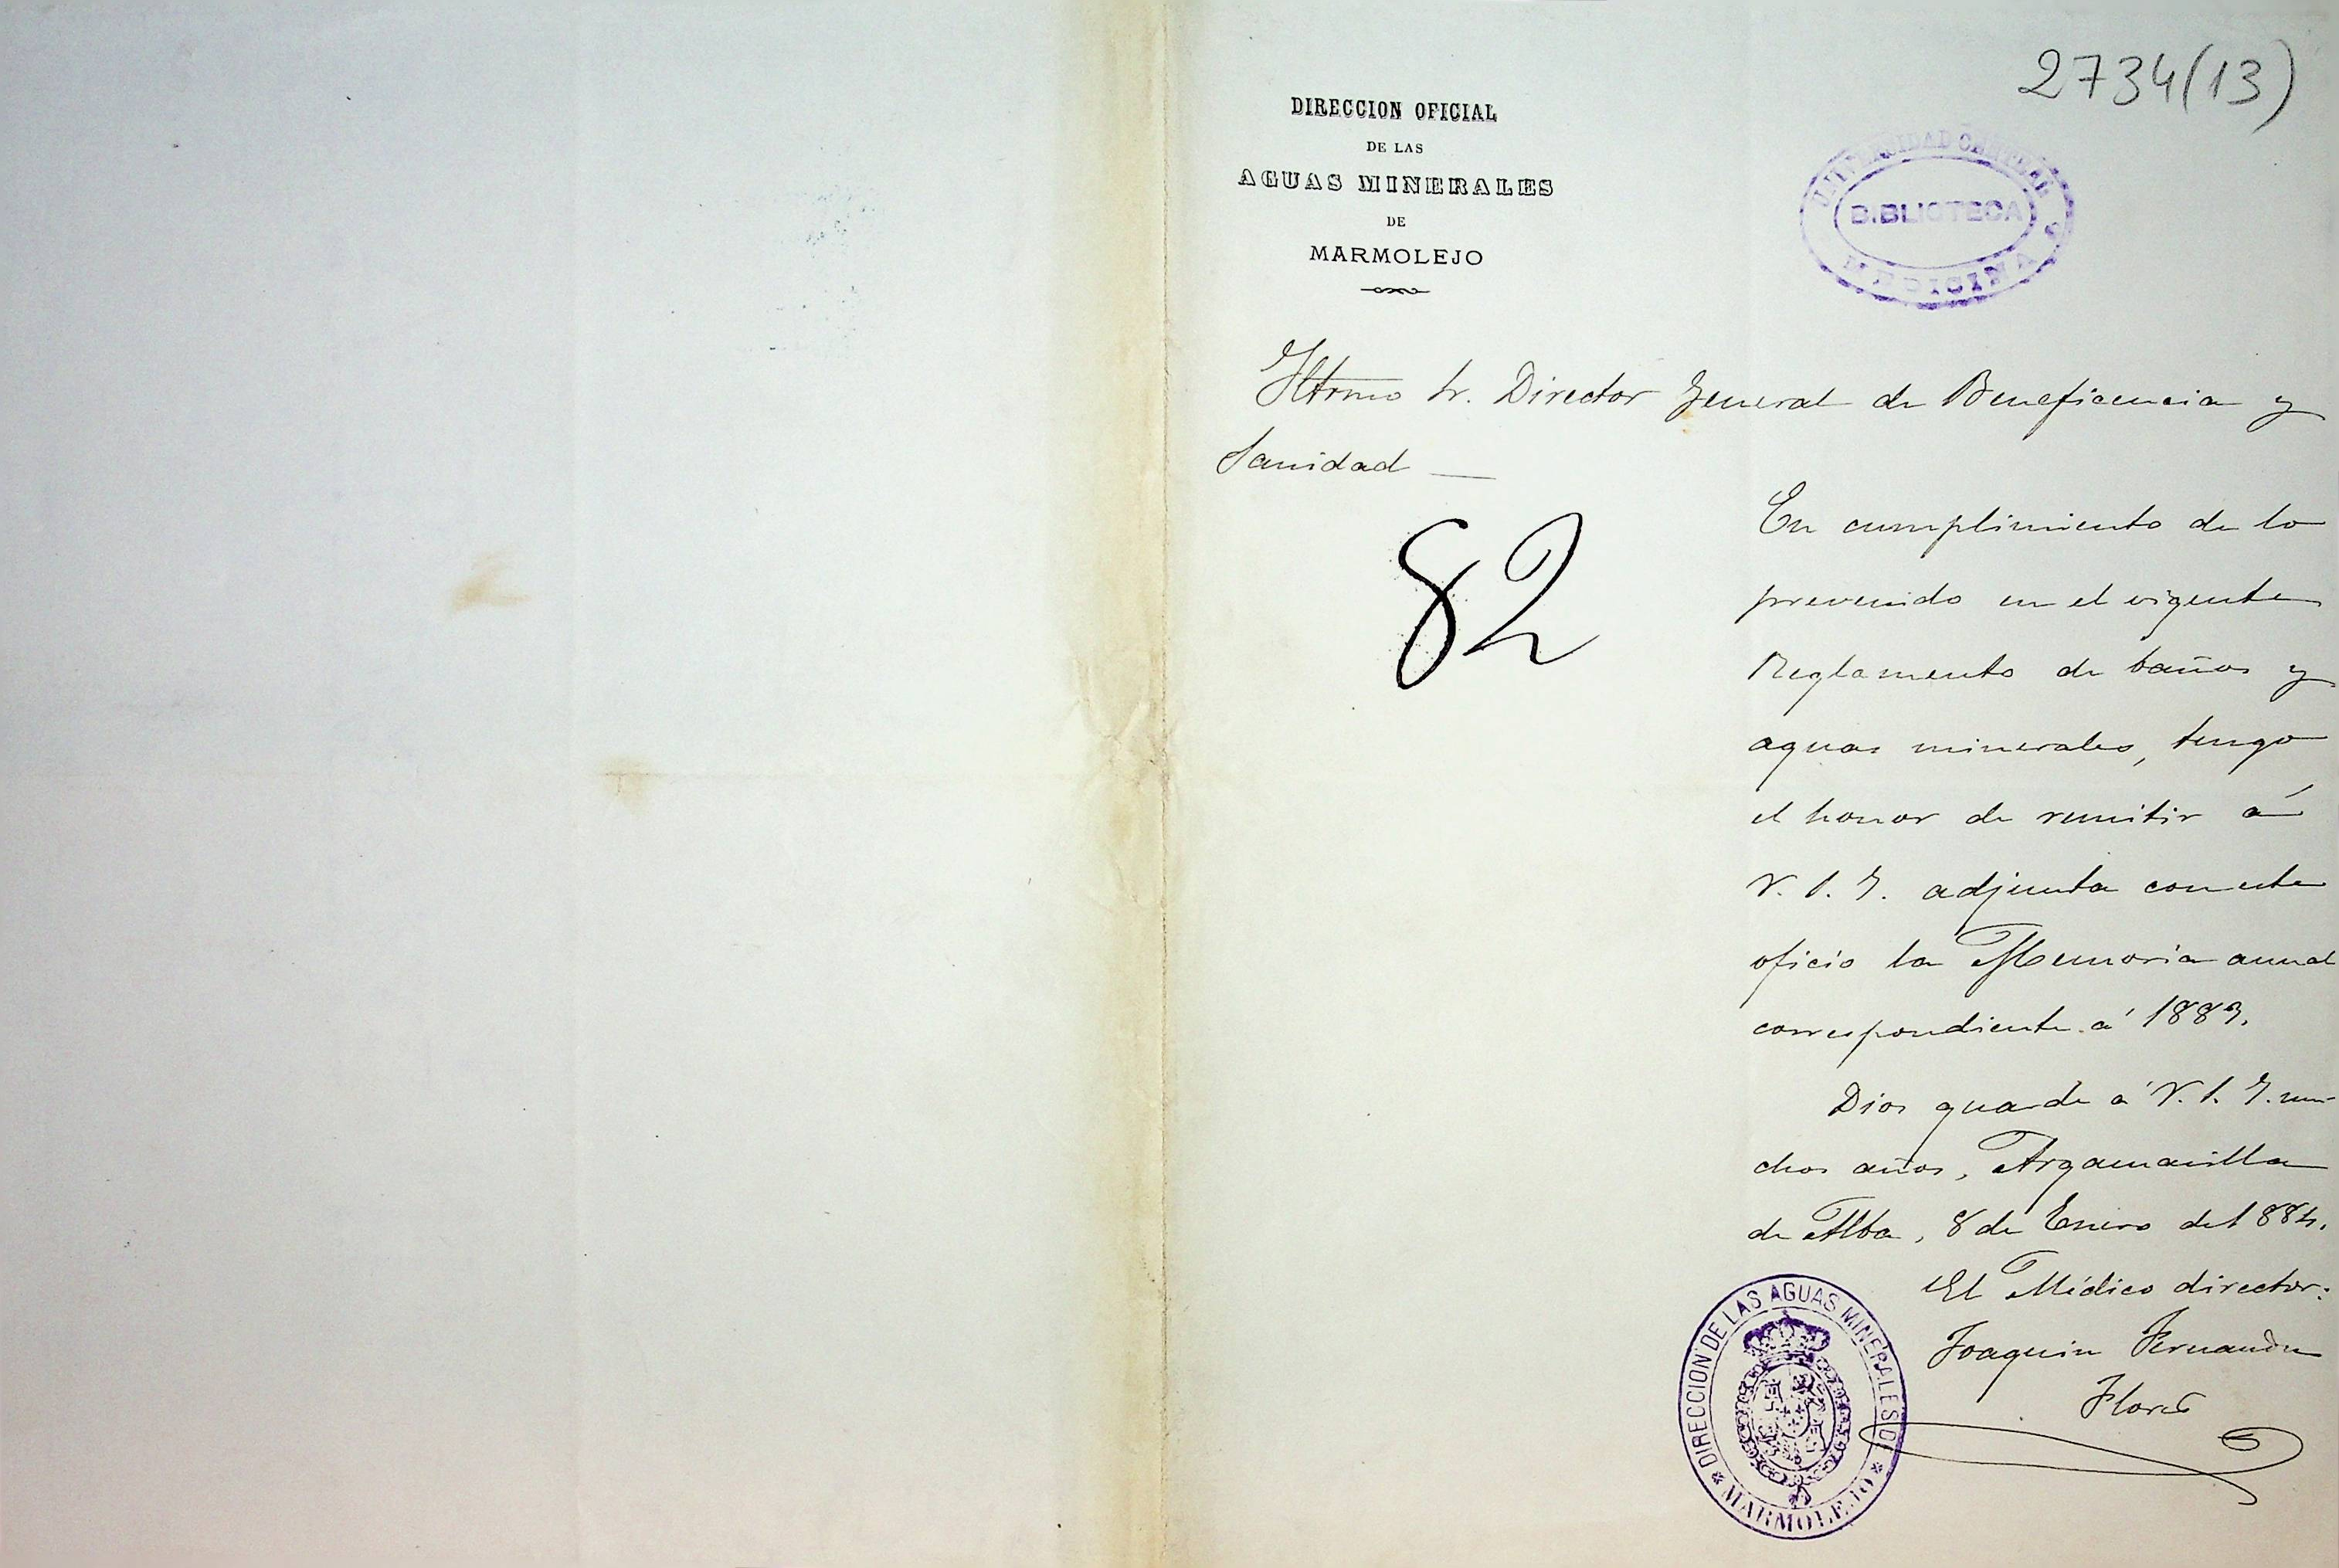 2734(13)
DIRECCION OFICIAL
DE LAS
AGUAS MINERALES
DE
MARMOLEJO
UNIVERSIDAD CENTRAL
BIBLIOTECA
MEDICINA
Iltrmo Sr. Director General de Beneficencia y
Sanidad —
82
En cumplimiento de lo
prevenido en el vigente
Reglamento de baños y
aguas minerales, tengo
el honor de remitir á
V. S. I. adjunta con este
oficio la Memoria anual
correspondiente á 1883.
Dios guarde á V. S. I. mu-
chos años, Argamasilla
de Alba, 8 de Enero de 1884.
El Médico director:
Joaquin Fernandez
Flores
DIRECCION DE LAS AGUAS MINERALES DE
* MARMOLEJO *